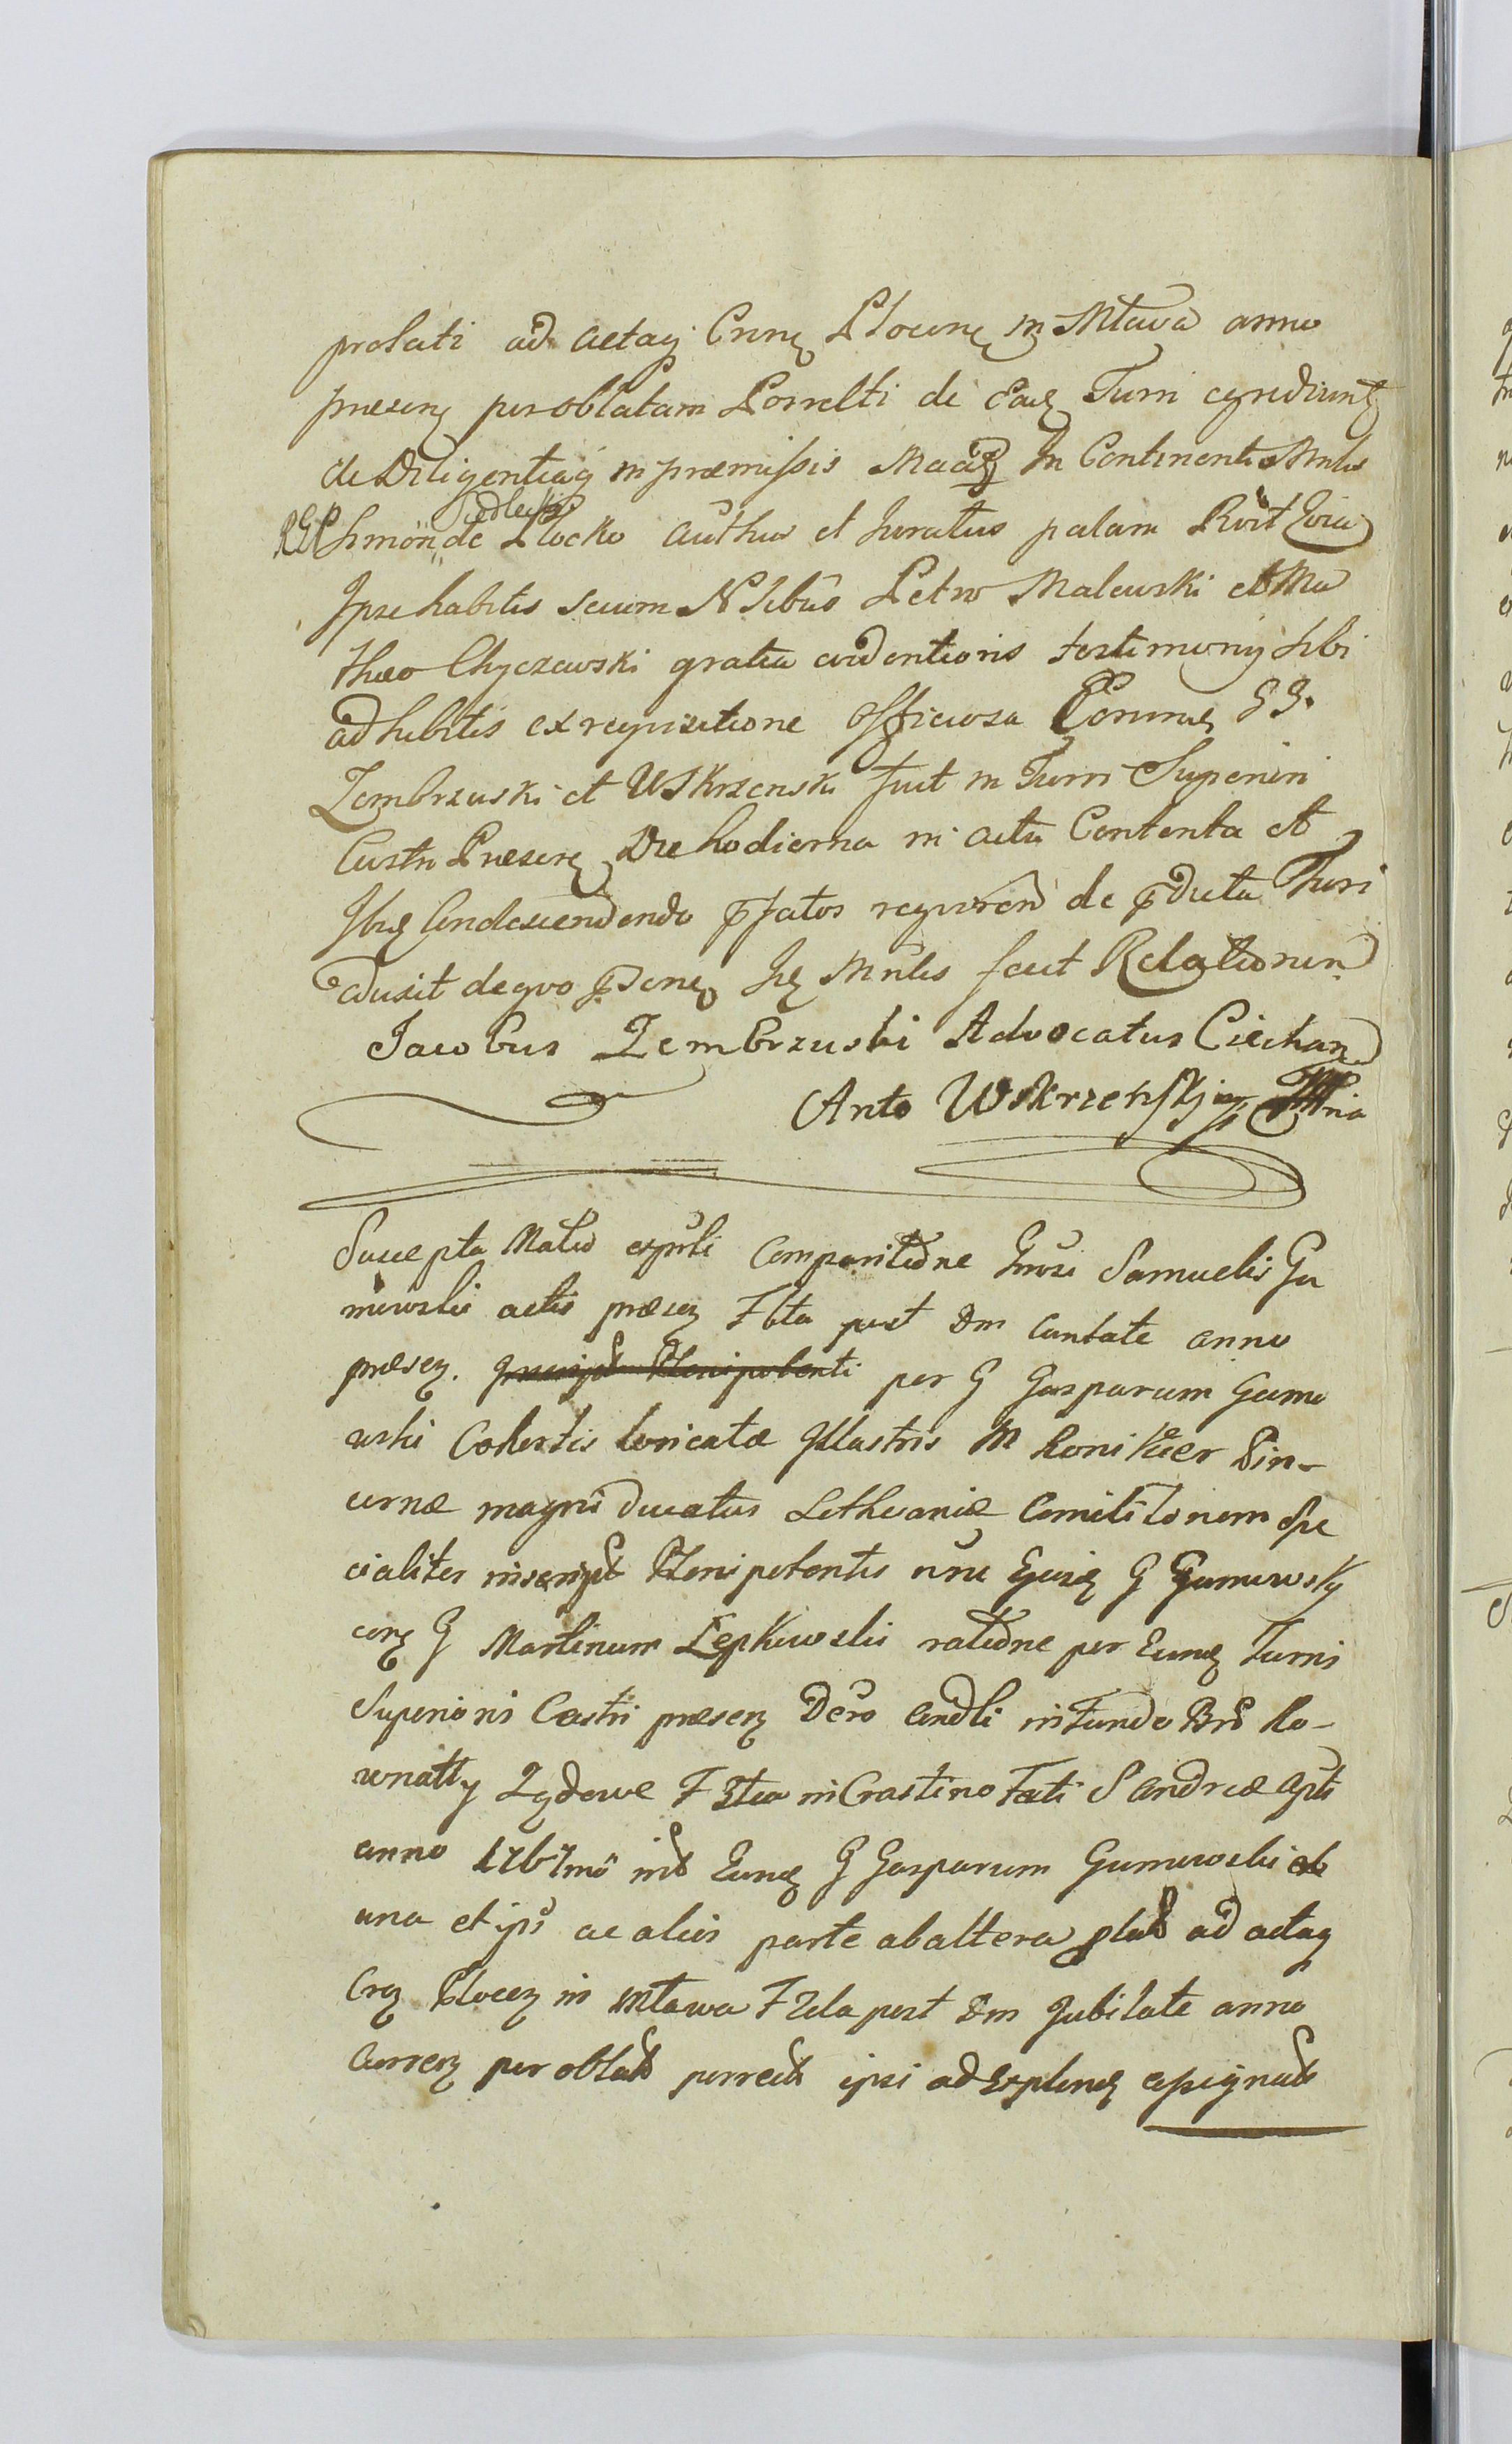 prolati ad actaq Crnq Plocenq in Mlava anno
praesenq per oblatam Porrecti de Eaq Turri egrediunt
de Diligentiaq in praemissis Mnlis In Continenti
RGR Szmon de Plocko
Siedlecki
author et Juratus palam Rcit
Ipse habitis secum Nlibus Petro Malewski et Ma
theo Chyczewski gratia evidentioris testimonij Sibi
adhibitis ex requisitione Officiosa GG.
Zembrzuski et Wskrzenski fuit in Turri Superiori
Castri Praesenq Die hodierna in actu Contenta et
Ibiq Condescendendo pfatos requiren de pdicta Turri
eduxit de quo pDcnq Iq Mnlis fecit Relationem
Jacobus Zembrzuski Advocatus Ciechan
Anto Wskrzenskj
Suscepta Matio expuli Comparitione Gnrosi Samuelis Gu
mowski actis praesenq F 6ta post Dm Cantate anno
praesenq. Plenipotenti per G Gasparum Gumo
wski Cohortis loricatae Illustris M Ronikier Pin-
cernae magni ducatus Lithvaniae Comilitonem Spe
cialiter inscript Plenipotentis nne Ejusq G Gumowsky
conq G Martinum Lepkowski ratione per Eunq Turris
Superioris Castri praesenq Dero Condli in Fundo Bro Ko-
wnatky Zydowe F 3tia in Crastino Festi S Andreae Apli
anno 1767mo int Eunq G Gasparum Gumowski ab
una et ips ac aliis parte ab altera plat ad actaq
Crq Plocenq in Mlawa F 2da post Dm Jubilate anno
Currenq per oblat porrect ipsi ad Explenq assignat